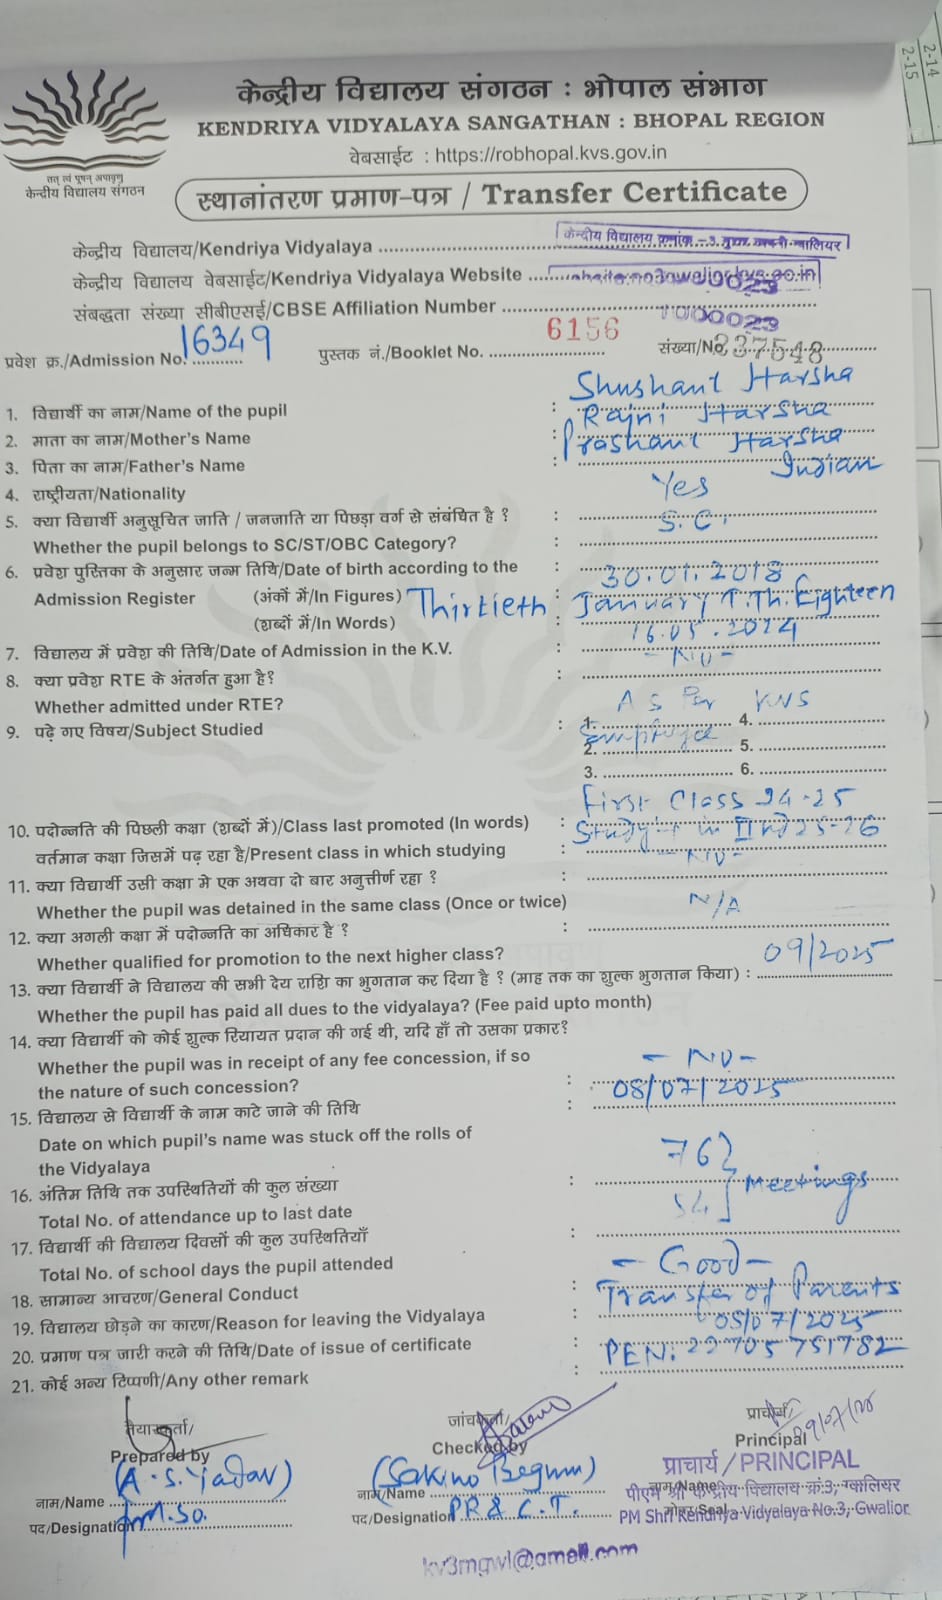 2-14
2-15
केन्द्रीय विद्यालय संगठन : भोपाल संभाग
KENDRIYA VIDYALAYA SANGATHAN : BHOPAL REGION
वेबसाईट : https://robhopal.kvs.gov.in
तत् त्वं पूषन् अपावृणु
केन्द्रीय विद्यालय संगठन
स्थानांतरण प्रमाण-पत्र / Transfer Certificate
केन्द्रीय विद्यालय/Kendriya Vidyalaya केन्द्रीय विद्यालय क्रमांक -3, ग्वालियर
केन्द्रीय विद्यालय वेबसाईट/Kendriya Vidyalaya Website
संबद्धता संख्या सीबीएसई/CBSE Affiliation Number 1000023
प्रवेश क्र./Admission No. 16349 पुस्तक नं./Booklet No. 6156 संख्या/No. 237548
1. विद्यार्थी का नाम/Name of the pupil : Shushant Harsha
2. माता का नाम/Mother's Name : Rajni Harsha
3. पिता का नाम/Father's Name : Prashant Harsha
4. राष्ट्रीयता/Nationality Indian
5. क्या विद्यार्थी अनुसूचित जाति / जनजाति या पिछड़ा वर्ग से संबंचित है ? : Yes
Whether the pupil belongs to SC/ST/OBC Category? : S.C.
6. प्रवेश पुस्तिका के अनुसार जन्म तिथि/Date of birth according to the :
Admission Register (अंकों में/In Figures) : 30.01.2018
(शब्दों में/In Words) : Thirtieth January T.Th. Eighteen
7. विद्यालय में प्रवेश की तिथि/Date of Admission in the K.V. : 16.05.2024
8. क्या प्रवेश RTE के अंतर्गत हुआ है? : - NO -
Whether admitted under RTE?
9. पढ़े गए विषय/Subject Studied : As Per KVS
1. 4.
2. 5.
3. 6.
10. पदोन्नति की पिछली कक्षा (शब्दों में)/Class last promoted (In words) : First Class 24-25
वर्तमान कक्षा जिसमें पढ़ रहा है/Present class in which studying : in IInd 25-26
11. क्या विद्यार्थी उसी कक्षा मे एक अथवा दो बार अनुत्तीर्ण रहा ? : - NO -
Whether the pupil was detained in the same class (Once or twice)
12. क्या अगली कक्षा में पदोन्नति का अधिकार है ? : N/A
Whether qualified for promotion to the next higher class?
13. क्या विद्यार्थी ने विद्यालय की सभी देय राशि का भुगतान कर दिया है ? (माह तक का शुल्क भुगतान किया) : 09/2025
Whether the pupil has paid all dues to the vidyalaya? (Fee paid upto month)
14. क्या विद्यार्थी को कोई शुल्क रियायत प्रदान की गई थी, यदि हाँ तो उसका प्रकार?
Whether the pupil was in receipt of any fee concession, if so
the nature of such concession? : - NO -
15. विद्यालय से विद्यार्थी के नाम काटे जाने की तिथि : 08/07/2025
Date on which pupil's name was stuck off the rolls of
the Vidyalaya
16. अंतिम तिथि तक उपस्थितियों की कुल संख्या : 76
Total No. of attendance up to last date Meetings
17. विद्यार्थी की विद्यालय दिवसों की कुल उपस्थितियाँ : 54
Total No. of school days the pupil attended
18. सामान्य आचरण/General Conduct : - Good -
19. विद्यालय छोड़ने का कारण/Reason for leaving the Vidyalaya : Transfer of Parents
20. प्रमाण पत्र जारी करने की तिथि/Date of issue of certificate : 08/07/2025
21. कोई अन्य टिप्पणी/Any other remark : PEN: 22705751782
तैयारकर्ता/ जांचकर्ता/ प्राचार्य/
Prepared by Checked by Principal
(A.S. Yadav) (Sakino Begum) प्राचार्य / PRINCIPAL
नाम/Name नाम/Name नाम/Name पीएम श्री केन्द्रीय विद्यालय क्रं.3, ग्वालियर
पद/Designation पद/Designation PR&C.T. मोहर/Seal PM Shri Kendriya Vidyalaya No.3, Gwalior
kv3mgwl@gmail.com